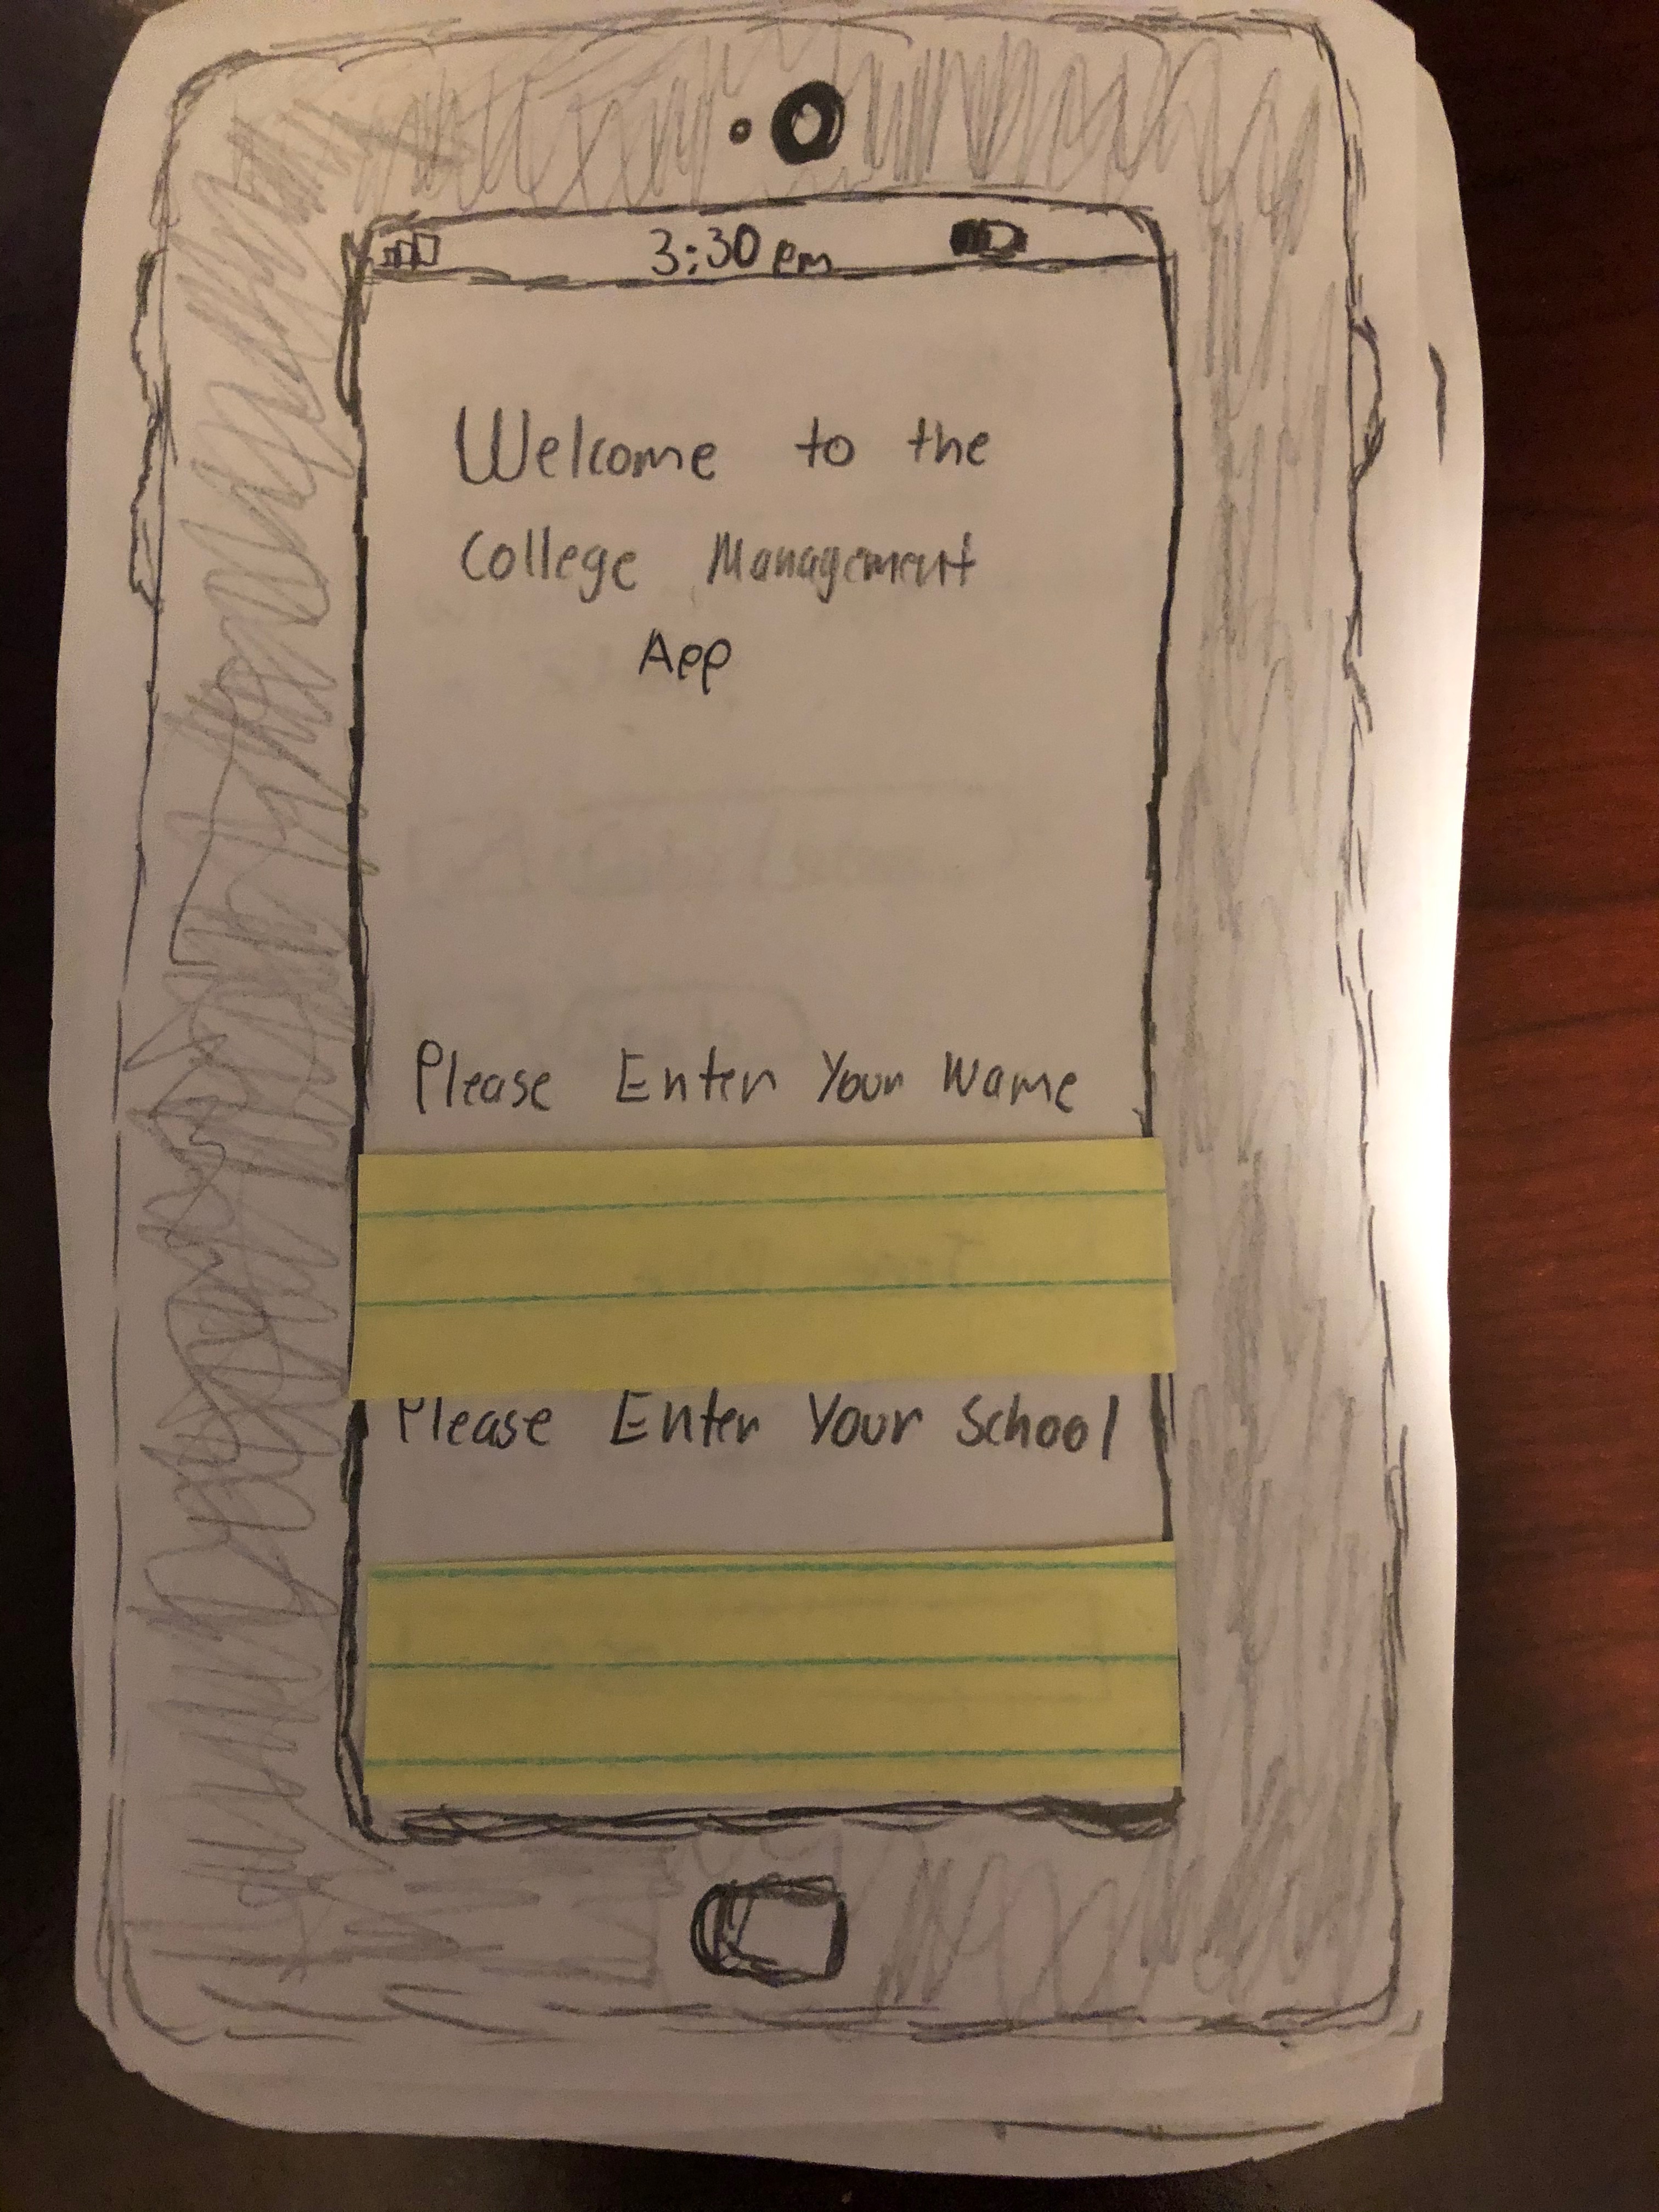 3:30 pm
Welcome to the
College Management
App
Please Enter Your Name
Please Enter Your School